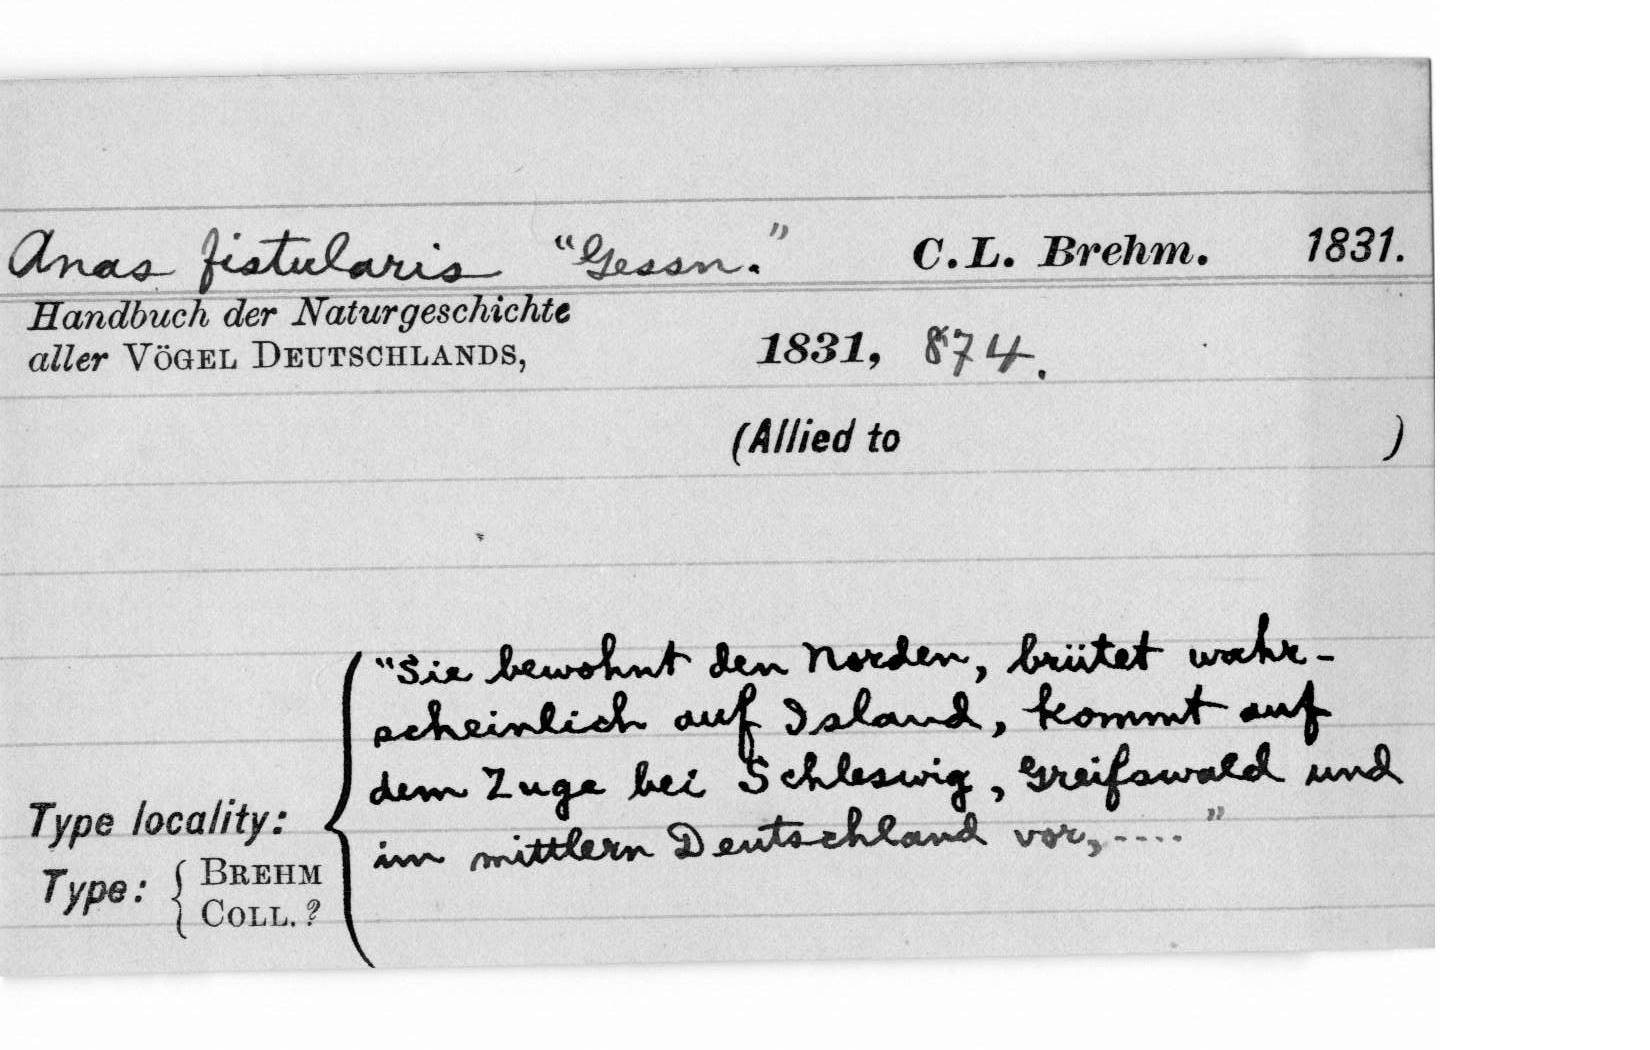 Anas fistularis "Gessn." C.L. Brehm. 1831.
Handbuch der Naturgeschichte
aller VÖGEL DEUTSCHLANDS, 1831, 874.
(Allied to )
"Sie bewohnt den Norden, brütet wahr-
scheinlich auf Island, kommt auf
dem Zuge bei Schleswig, Greifswald und
im mittlern Deutschland vor, ...."
Type locality:
Type: { BREHM
COLL. ?